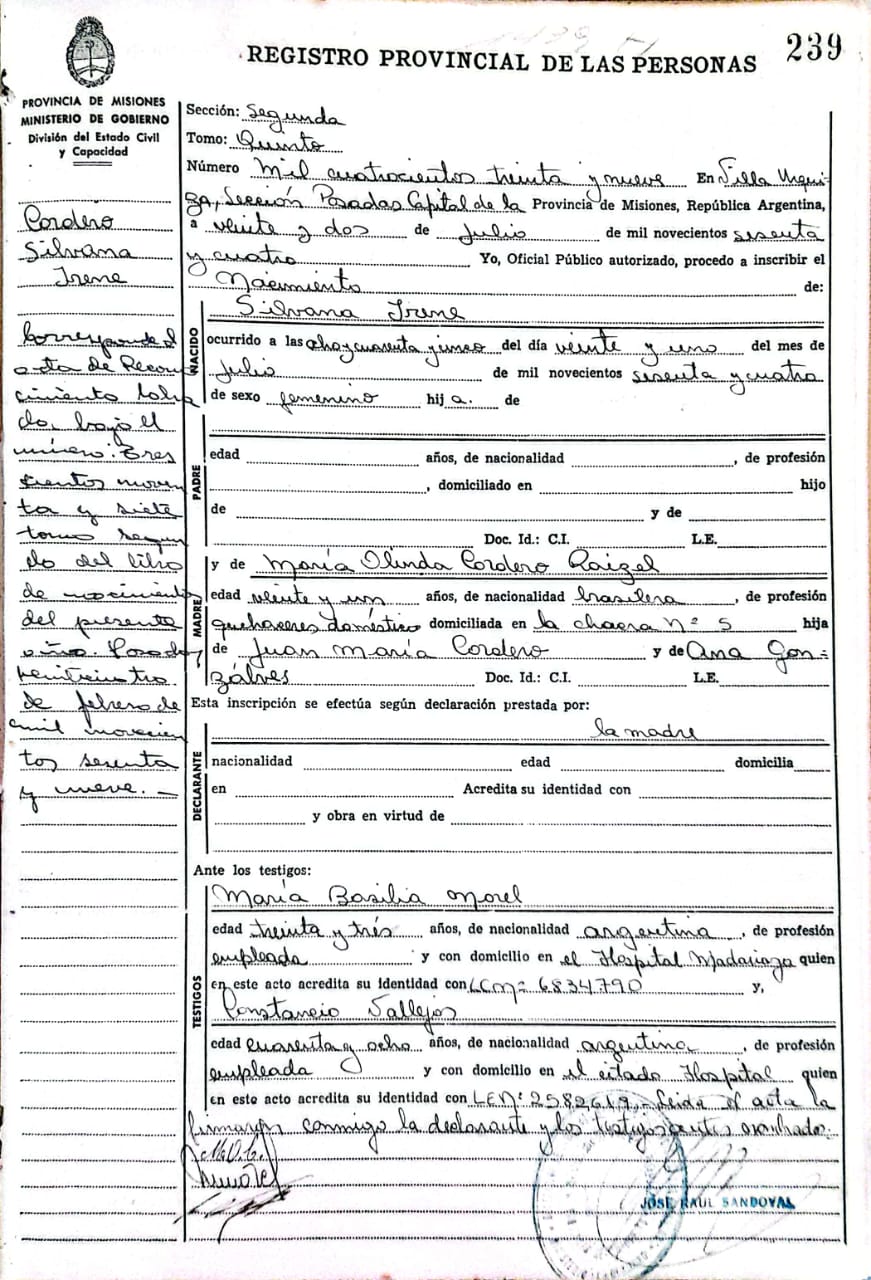 239
REGISTRO PROVINCIAL DE LAS PERSONAS
PROVINCIA DE MISIONES
MINISTERIO DE GOBIERNO
División del Estado Civil
y Capacidad
Cordero
Silvana
Irene
Corresponde el
acta de Recono
cimiento labra
do, bajo el
número: Tres
cientos noven
ta y siete
tomo segun
do del libro
de nacimientos
del presente
año. Posadas
veinticuatro
de febrero de
mil novecien
tos sesenta
y nueve. —
Sección: Segunda
Tomo: Quinto
Número Mil cuatrocientos treinta y nueve En Villa Urqui-
za, Sección Posadas Capital de la Provincia de Misiones, República Argentina,
a veinte y dos de Julio de mil novecientos sesenta
y cuatro Yo, Oficial Público autorizado, procedo a inscribir el
Nacimiento de:
NACIDO
Silvana Irene
ocurrido a las ocho y cuarenta y cinco del día veinte y uno del mes de
Julio de mil novecientos sesenta y cuatro
de sexo femenino hij a. de
PADRE
edad años, de nacionalidad , de profesión
, domiciliado en hijo
de y de
Doc. Id.: C.I. L.E.
MADRE
y de María Olinda Cordero Raizel
edad veinte y un años, de nacionalidad brasilera , de profesión
quehaceres doméstico domiciliada en la chacra Nº 5 hija
de Juan María Cordero y de Ana Gon=
zálves Doc. Id.: C.I. L.E.
Esta inscripción se efectúa según declaración prestada por:
la madre
DECLARANTE
nacionalidad edad domicilia
en Acredita su identidad con
y obra en virtud de
Ante los testigos:
TESTIGOS
María Basilia Morel
edad treinta y trés años, de nacionalidad argentina , de profesión
empleada y con domicilio en el Hospital Madariaga quien
en este acto acredita su identidad con LCNº 6834790 y,
Constancio Vallejos
edad cuarenta y ocho años, de nacionalidad argentina , de profesión
empleada y con domicilio en el citado Hospital quien
en este acto acredita su identidad con LENº 2582619. Leida el acta la
firmaron conmigo la declarante y los testigos antes nombrados.
M.O.C.
JOSE RAUL SANDOVAL